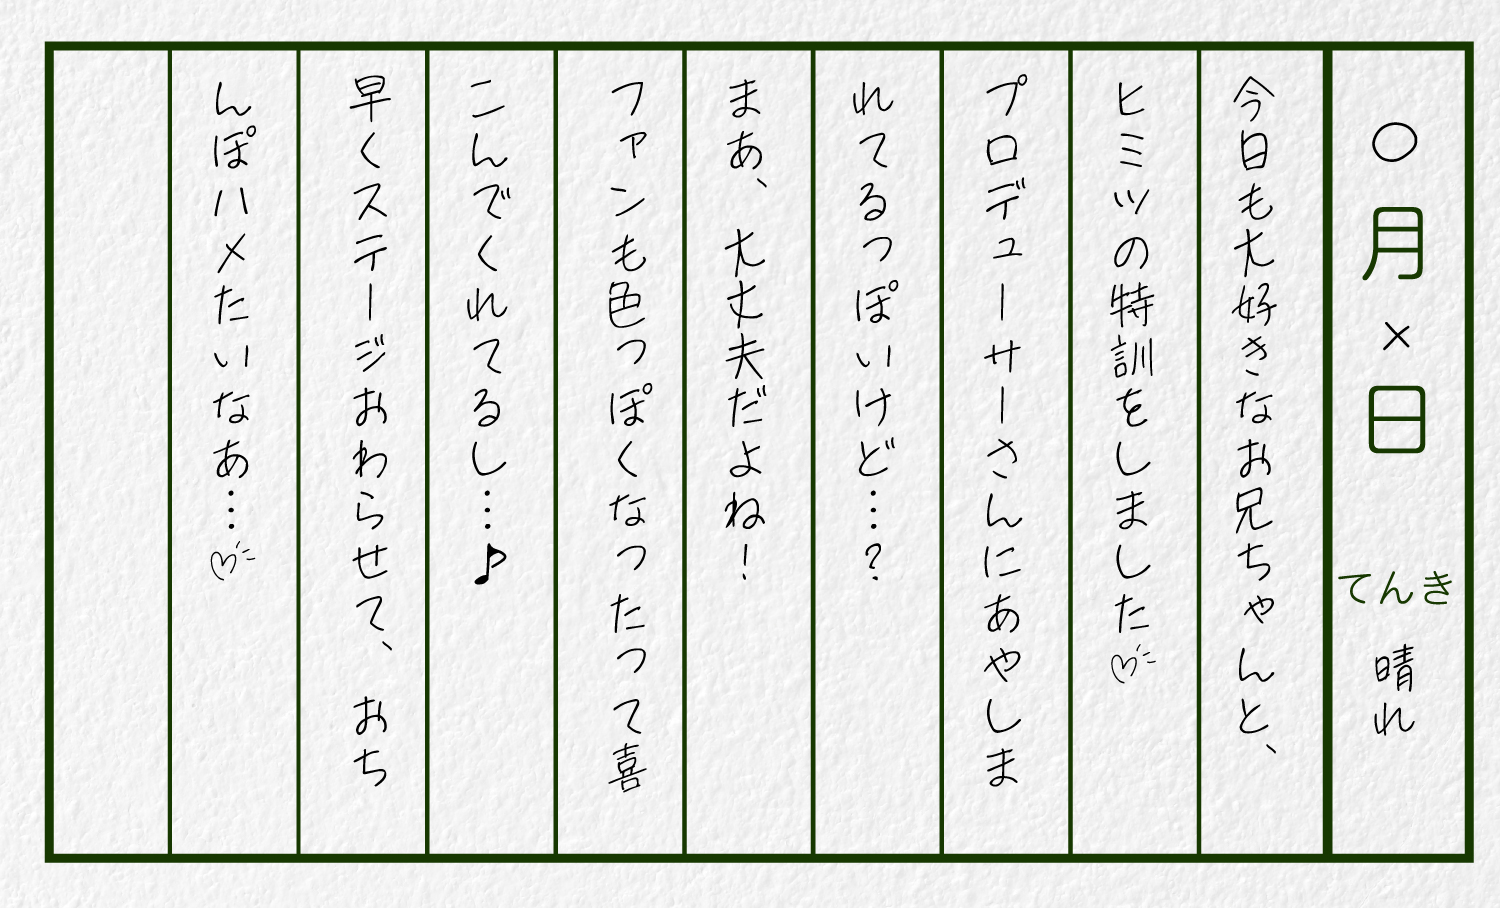 〇月×日 てんき 晴れ
今日も大好きなお兄ちゃんと、
ヒミツの特訓をしました♡
プロデューサーさんにあやしま
れてるっぽいけど…?
まあ、大丈夫だよね!
ファンも色っぽくなったって喜
こんでくれてるし…♪
早くステージおわらせて、おち
んぽハメたいなあ…♡